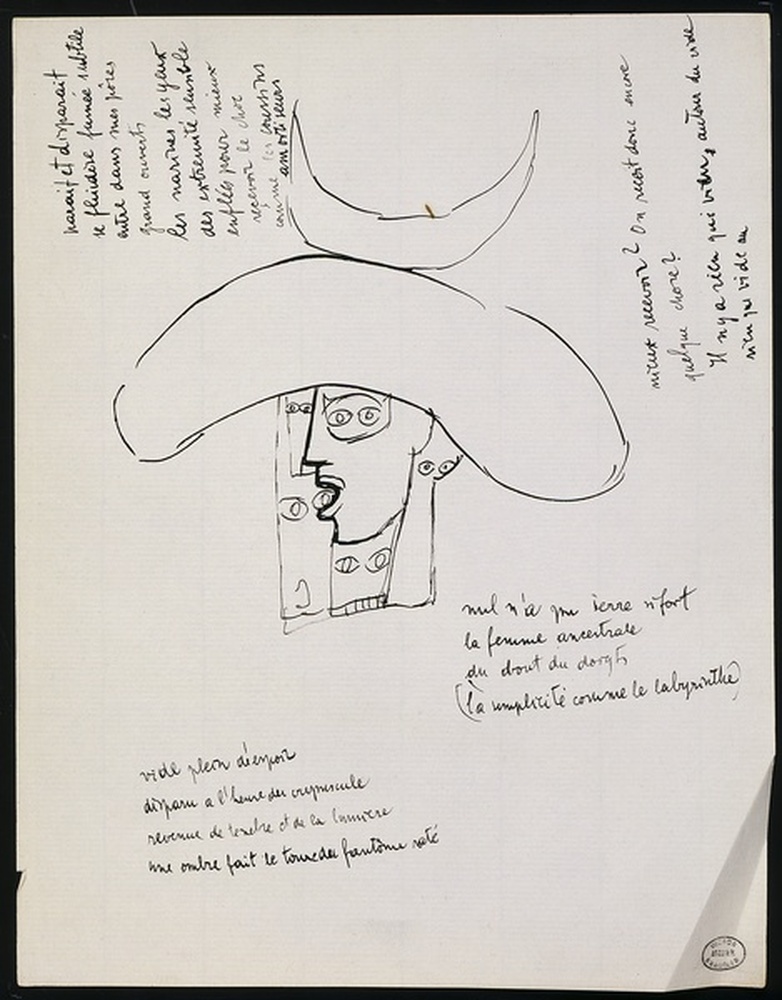 paraît et disparaît
se fluidise fumée subtile
entre dans mes pores
grand ouverts
les narines les yeux
des extremité sensible
enflés pour mieux
recevoir le choc
comme les coussins
amortisseurs
mieux recevoir? On reçoit donc encore
quelque chose?
Il n'y a rien qui vient, autour du vide
rien qui vide au
nul n'a pu serre si fort
la femme ancestrale
du bout du doigts
(la simplicité comme le labyrinthe)
vide plein d'espoir
disparu a l'heure du crepuscule
revenue de tenebre et de la lumiere
une ombre fait le tour du fantôme raté